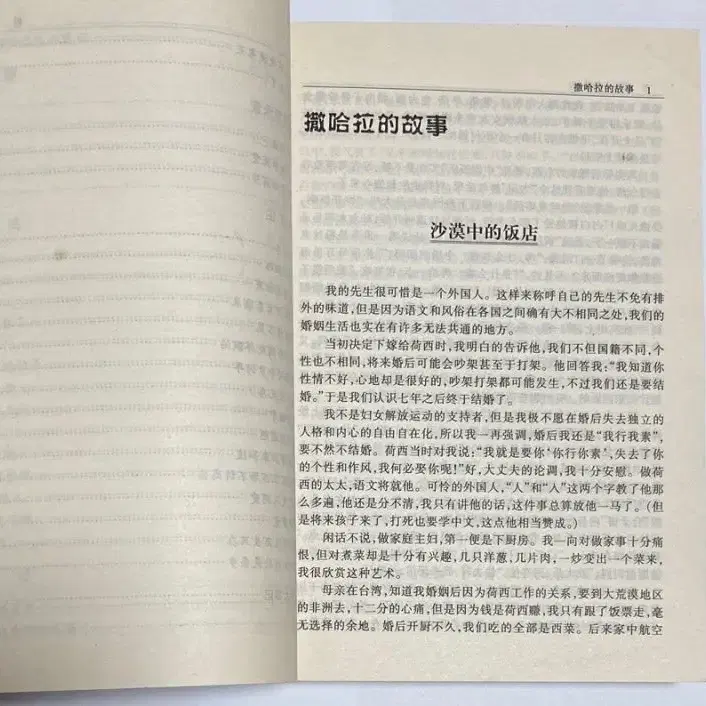 撒哈拉的故事 1
撒哈拉的故事
沙漠中的饭店
我的先生很可惜是一个外国人。这样来称呼自己的先生不免有排
外的味道,但是因为语文和风俗在各国之间确有大不相同之处,我们的
婚姻生活也实在有许多无法共通的地方。
当初决定下嫁给荷西时,我明白的告诉他,我们不但国籍不同,个
性也不相同,将来婚后可能会吵架甚至于打架。他回答我:“我知道你
性情不好,心地却是很好的,吵架打架都可能发生,不过我们还是要结
婚。”于是我们认识七年之后终于结婚了。
我不是妇女解放运动的支持者,但是我极不愿在婚后失去独立的
人格和内心的自由自在化,所以我一再强调,婚后我还是“我行我素”,
要不然不结婚。荷西当时对我说:“我就是要你‘你行你素’,失去了你
的个性和作风,我何必娶你呢!”好,大丈夫的论调,我十分安慰。做荷
西的太太,语文将就他。可怜的外国人,“人”和“入”这两个字教了他那
么多遍,他还是分不清,我只有讲他的话,这件事总算放他一马了。(但
是将来孩子来了,打死也要学中文,这点他相当赞成。)
闲话不说,做家庭主妇,第一便是下厨房。我一向对做家事十分痛
恨,但对煮菜却是十分有兴趣,几只洋葱,几片肉,一炒变出一个菜来,
我很欣赏这种艺术。
母亲在台湾,知道我婚姻后因为荷西工作的关系,要到大荒漠地区
的非洲去,十二分的心痛,但是因为钱是荷西赚,我只有跟了饭票走,毫
无选择的余地。婚后开厨不久,我们吃的全部是西菜。后来家中航空